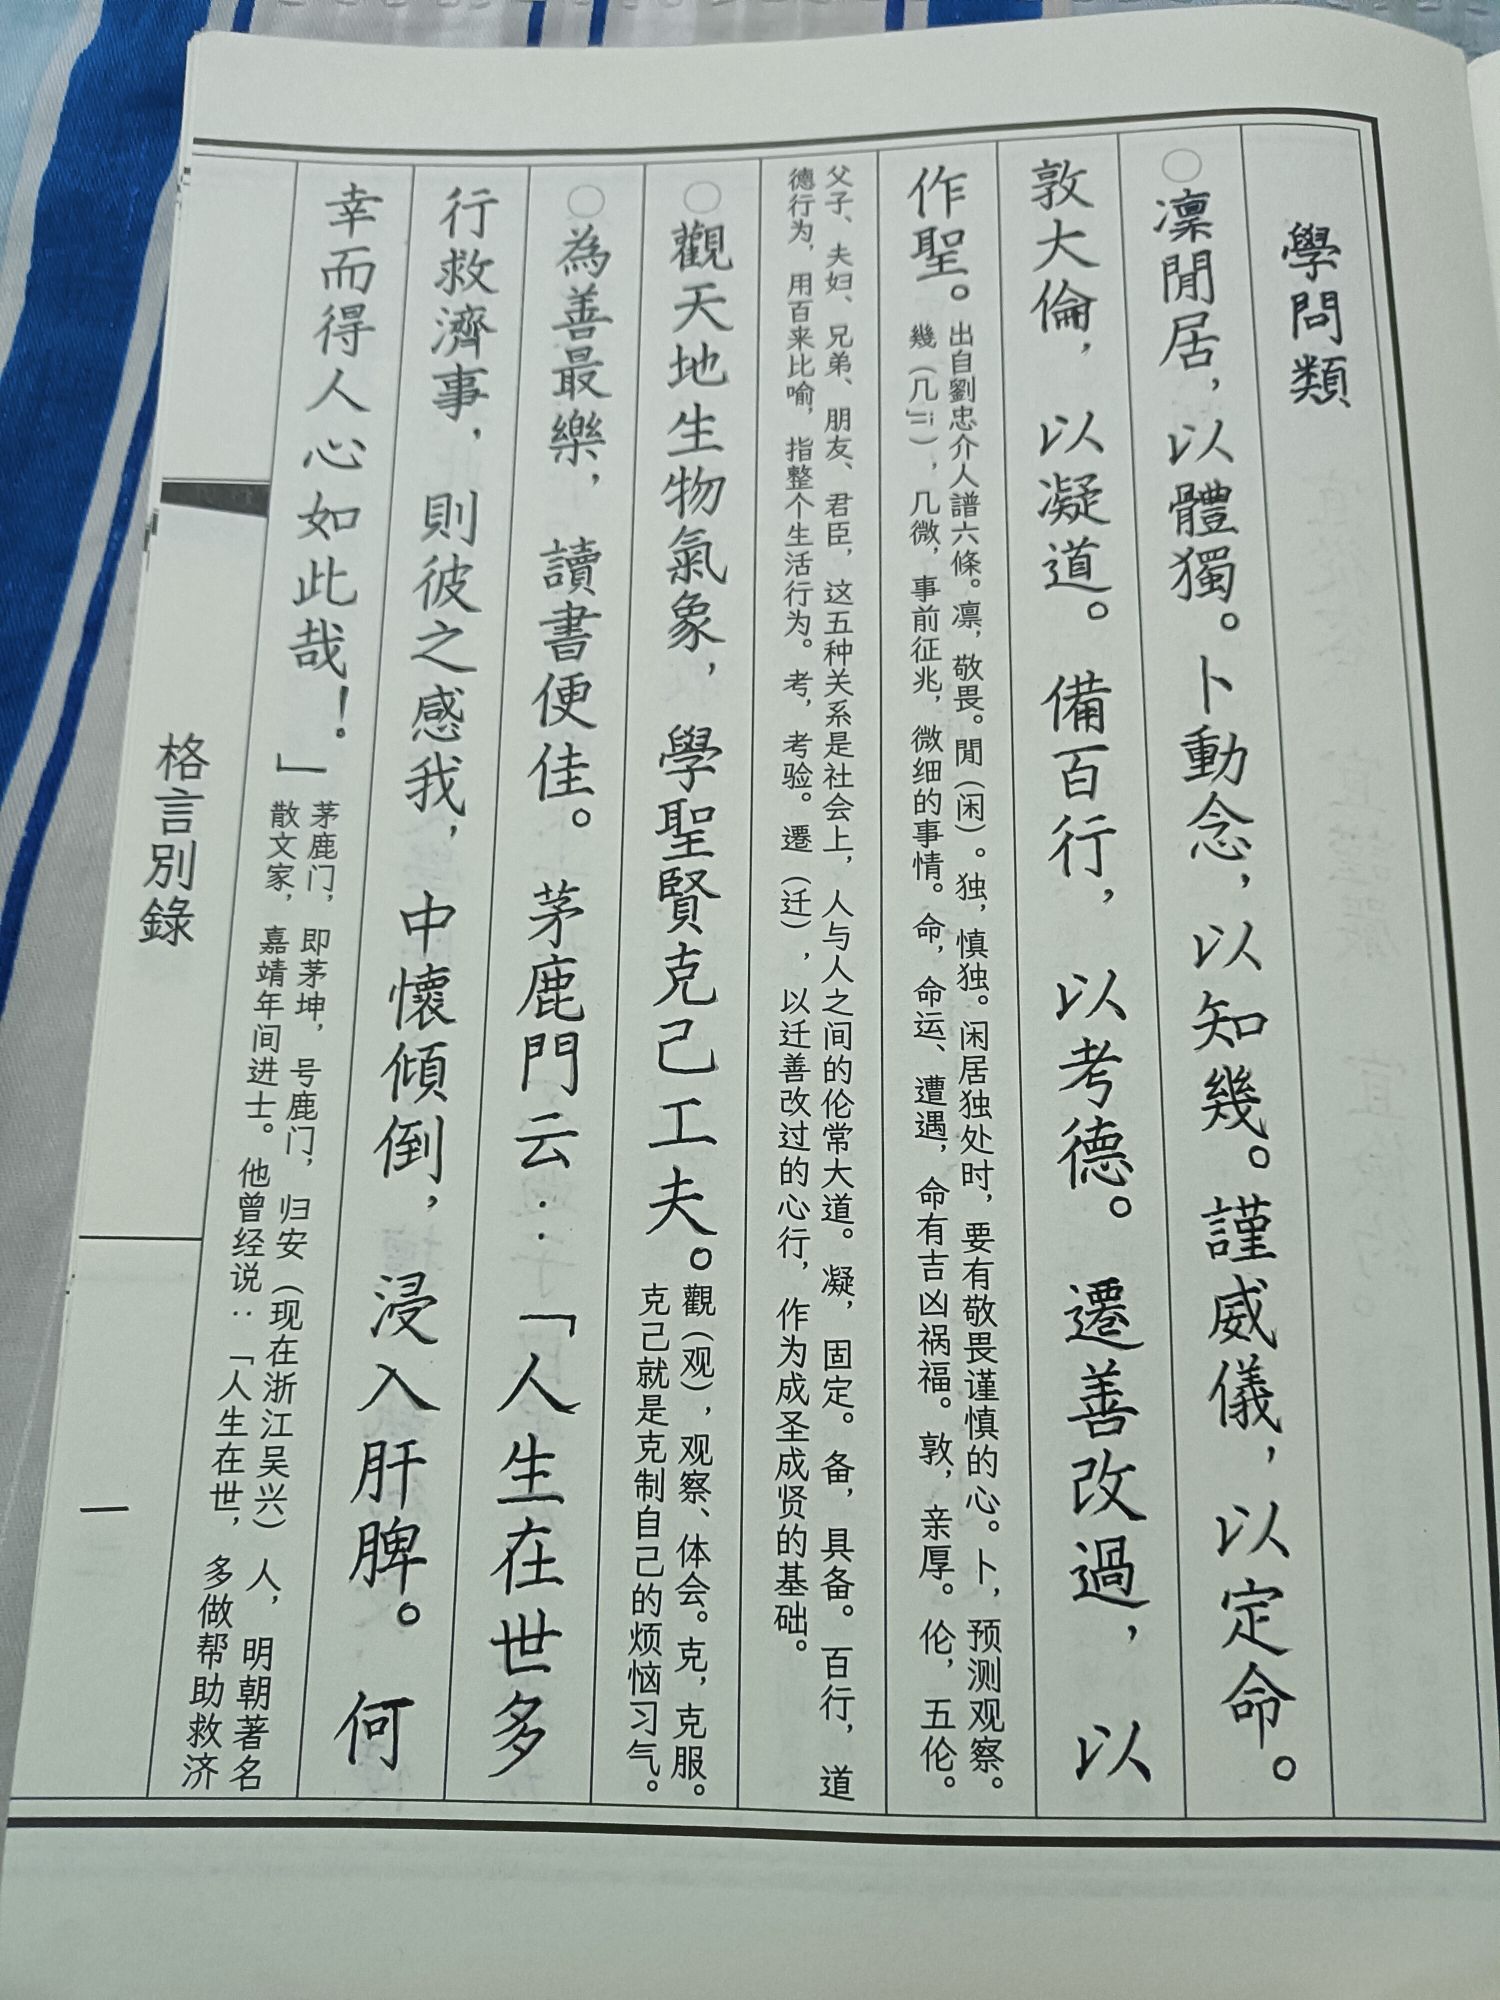 學問類
○凛閒居，以體獨。卜動念，以知幾。謹威儀，以定命。
敦大倫，以凝道。備百行，以考德。遷善改過，以
作聖。
出自劉忠介人譜六條。凛，敬畏。閒（闲）。独，慎独。闲居独处时，要有敬畏谨慎的心。卜，预测观察。
幾（几jī），几微，事前征兆，微细的事情。命，命运、遭遇，命有吉凶祸福。敦，亲厚。伦，五伦。
父子、夫妇、兄弟、朋友、君臣，这五种关系是社会上，人与人之间的伦常大道。凝，固定。备，具备。百行，道
德行为，用百来比喻，指整个生活行为。考，考验。遷（迁），以迁善改过的心行，作为成圣成贤的基础。
○觀天地生物氣象，學聖賢克己工夫。
觀（观），观察、体会。克，克服。
克己就是克制自己的烦恼习气。
○為善最樂，讀書便佳。茅鹿門云：「人生在世多
行救濟事，則彼之感我，中懷傾倒，浸入肝脾。何
幸而得人心如此哉！」
茅鹿门，即茅坤，号鹿门，归安（现在浙江吴兴）人，明朝著名
散文家，嘉靖年间进士。他曾经说：「人生在世，多做帮助救济
格言別錄
一